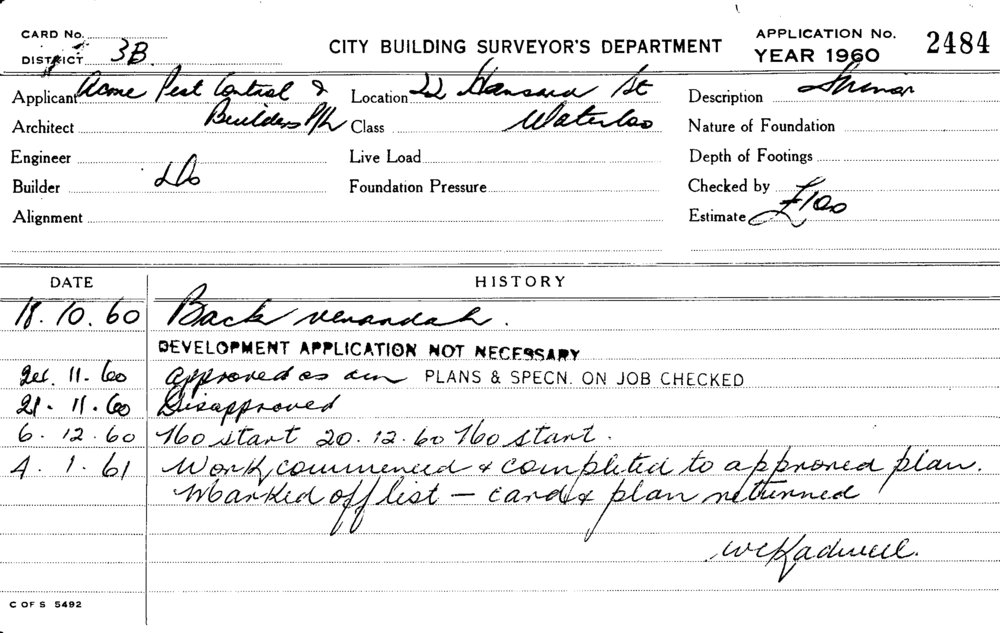 CARD No.
DISTRICT 3B
CITY BUILDING SURVEYOR'S DEPARTMENT
APPLICATION No. 2484
YEAR 1960
Applicant Acme Pest Control &
Builders P/L
Location 22 Hansard St
Waterloo
Description
Architect
Class
Nature of Foundation
Engineer
Live Load
Depth of Footings
Builder Do
Foundation Pressure
Checked by
Alignment
Estimate £100
DATE HISTORY
18.10.60 Back verandah.
DEVELOPMENT APPLICATION NOT NECESSARY
11.60 Approved as am PLANS & SPECN. ON JOB CHECKED
21.11.60 Disapproved
6.12.60 No start 20.12.60 No start.
4.1.61 Work commenced & completed to approved plan.
Marked off list — card & plan returned
C OF S 5492